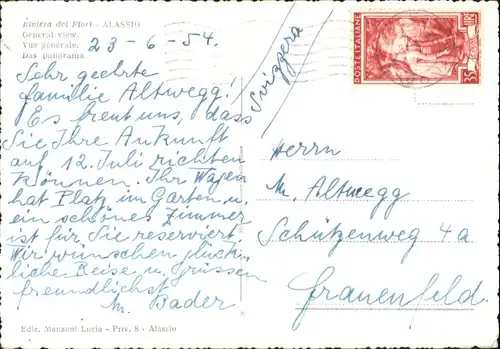 Riviera dei Fiori - ALASSIO
General view.
Vue générale.
Das panorama
23-6-54.
Sehr geehrte
familie Altwegg!
Es freut uns, dass
Sie Ihre Ankunft
auf 12. Juli richten
können. Ihr Wagen
hat Platz im Garten u.
ein schönes Zimmer
ist für Sie reserviert.
Wir wünschen glück-
liche Reise u. grüssen
freundlichst
M. Bader
Ediz. Manzoni Lucia - Priv. 8 - Alassio
Svizzera
POSTE ITALIANE
LIRE
35
Herrn
M. Altwegg
Schützenweg 4a
Frauenfeld.